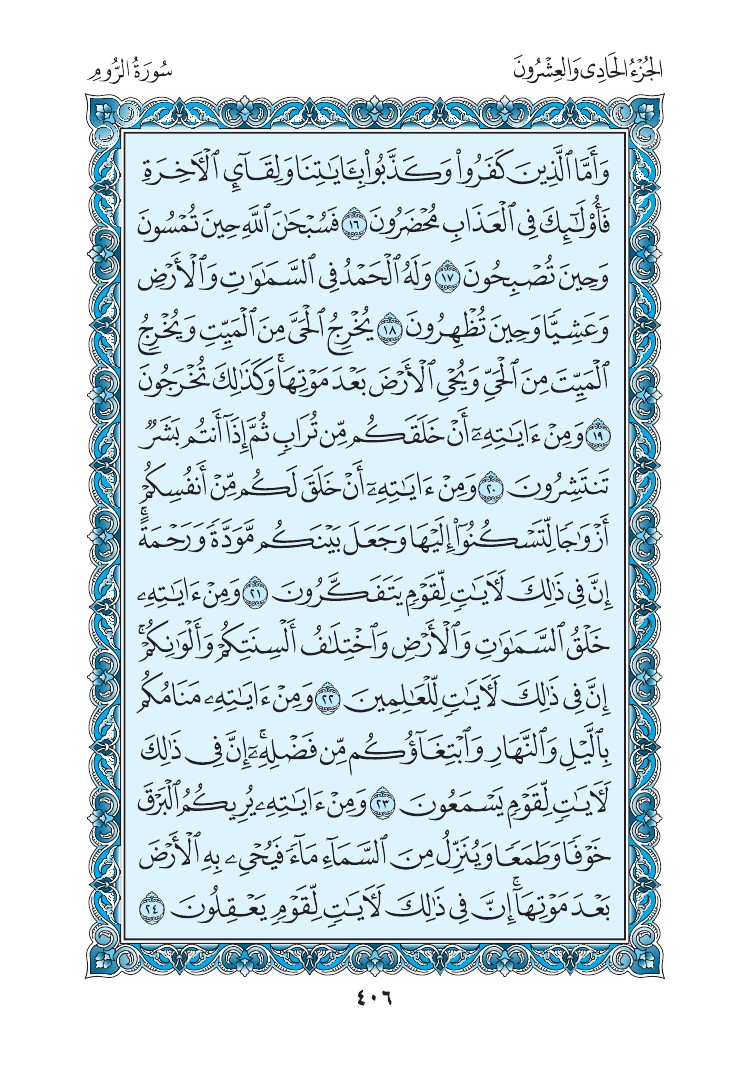 الجُزْءُ الحَادِي وَالعِشْرُونَ
سُورَةُ الرُّومِ
وَأَمَّا ٱلَّذِينَ كَفَرُوا۟ وَكَذَّبُوا۟ بِـَٔايَـٰتِنَا وَلِقَآئِ ٱلْـَٔاخِرَةِ
فَأُو۟لَـٰٓئِكَ فِى ٱلْعَذَابِ مُحْضَرُونَ ١٦ فَسُبْحَـٰنَ ٱللَّهِ حِينَ تُمْسُونَ
وَحِينَ تُصْبِحُونَ ١٧ وَلَهُ ٱلْحَمْدُ فِى ٱلسَّمَـٰوَٰتِ وَٱلْأَرْضِ
وَعَشِيًّا وَحِينَ تُظْهِرُونَ ١٨ يُخْرِجُ ٱلْحَىَّ مِنَ ٱلْمَيِّتِ وَيُخْرِجُ
ٱلْمَيِّتَ مِنَ ٱلْحَىِّ وَيُحْىِ ٱلْأَرْضَ بَعْدَ مَوْتِهَا ۚ وَكَذَٰلِكَ تُخْرَجُونَ
١٩ وَمِنْ ءَايَـٰتِهِۦٓ أَنْ خَلَقَكُم مِّن تُرَابٍ ثُمَّ إِذَآ أَنتُم بَشَرٌ
تَنتَشِرُونَ ٢٠ وَمِنْ ءَايَـٰتِهِۦٓ أَنْ خَلَقَ لَكُم مِّنْ أَنفُسِكُمْ
أَزْوَٰجًا لِّتَسْكُنُوٓا۟ إِلَيْهَا وَجَعَلَ بَيْنَكُم مَّوَدَّةً وَرَحْمَةً ۚ
إِنَّ فِى ذَٰلِكَ لَـَٔايَـٰتٍ لِّقَوْمٍ يَتَفَكَّرُونَ ٢١ وَمِنْ ءَايَـٰتِهِۦ
خَلْقُ ٱلسَّمَـٰوَٰتِ وَٱلْأَرْضِ وَٱخْتِلَـٰفُ أَلْسِنَتِكُمْ وَأَلْوَٰنِكُمْ ۚ
إِنَّ فِى ذَٰلِكَ لَـَٔايَـٰتٍ لِّلْعَـٰلِمِينَ ٢٢ وَمِنْ ءَايَـٰتِهِۦ مَنَامُكُم
بِٱلَّيْلِ وَٱلنَّهَارِ وَٱبْتِغَآؤُكُم مِّن فَضْلِهِۦٓ ۚ إِنَّ فِى ذَٰلِكَ
لَـَٔايَـٰتٍ لِّقَوْمٍ يَسْمَعُونَ ٢٣ وَمِنْ ءَايَـٰتِهِۦ يُرِيكُمُ ٱلْبَرْقَ
خَوْفًا وَطَمَعًا وَيُنَزِّلُ مِنَ ٱلسَّمَآءِ مَآءً فَيُحْىِۦ بِهِ ٱلْأَرْضَ
بَعْدَ مَوْتِهَآ ۚ إِنَّ فِى ذَٰلِكَ لَـَٔايَـٰتٍ لِّقَوْمٍ يَعْقِلُونَ ٢٤
٤٠٦